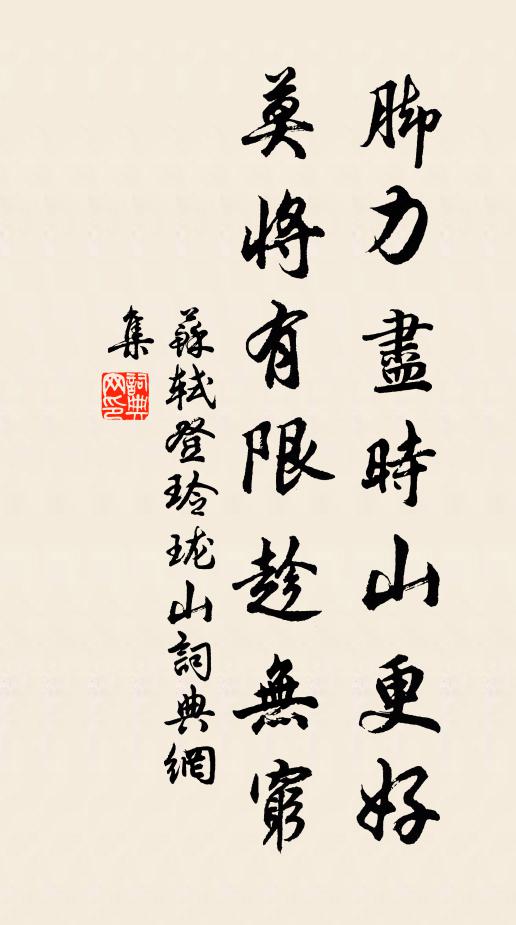 脚力盡時山更好
莫將有限趁無窮
蘇軾登玲瓏山詞典網
集
詞典
网印